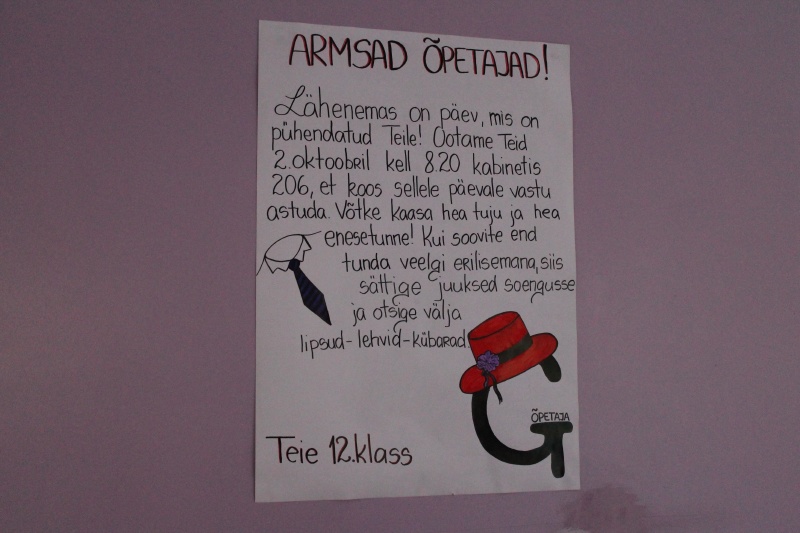 ARMSAD ÕPETAJAD!
Lähenemas on päev, mis on
pühendatud Teile! Ootame Teid
2.oktoobril kell 8.20 kabinetis
206, et koos sellele päevale vastu
astuda. Võtke kaasa hea tuju ja hea
enesetunne! Kui soovite end
tunda veelgi erilisemana, siis
sättige juuksed soengusse
ja otsige välja
lipsud-lehvid-kübarad.
ÕPETAJA
G
Teie 12.klass